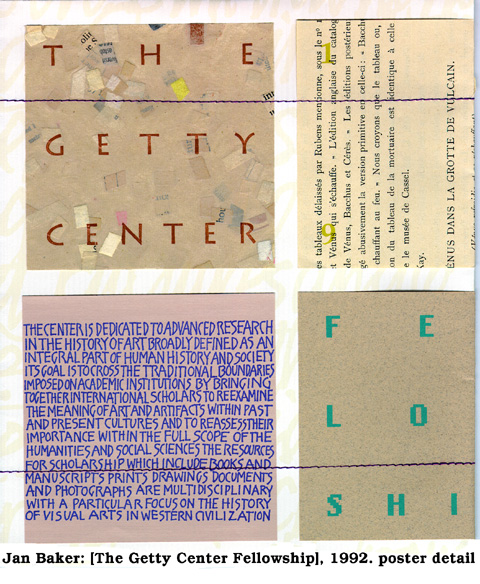 THE
GETTY
CENTER
1
9
es tableaux délaissés par Rubens mentionne, sous le nº
t Vénus qui s'échauffe. » L'édition anglaise du catalog
de Vénus, Bacchus et Cérès. » Les éditions postérieur
gé abusivement la version primitive en celle-ci : « Bacch
chauffant au feu. » Nous croyons que le tableau ou,
on du tableau de la mortuaire est identique à celle
e le musée de Cassel.
ay.
ENUS DANS LA GROTTE DE VULCAIN.
THE CENTER IS DEDICATED TO ADVANCED RESEARCH
IN THE HISTORY OF ART BROADLY DEFINED AS AN
INTEGRAL PART OF HUMAN HISTORY AND SOCIETY
ITS GOAL IS TO CROSS THE TRADITIONAL BOUNDARIES
IMPOSED ON ACADEMIC INSTITUTIONS BY BRINGING
TOGETHER INTERNATIONAL SCHOLARS TO REEXAMINE
THE MEANING OF ART AND ARTIFACTS WITHIN PAST
AND PRESENT CULTURES AND TO REASSESS THEIR
IMPORTANCE WITHIN THE FULL SCOPE OF THE
HUMANITIES AND SOCIAL SCIENCES THE RESOURCES
FOR SCHOLARSHIP WHICH INCLUDE BOOKS AND
MANUSCRIPTS PRINTS DRAWINGS DOCUMENTS
AND PHOTOGRAPHS ARE MULTIDISCIPLINARY
WITH A PARTICULAR FOCUS ON THE HISTORY
OF VISUAL ARTS IN WESTERN CIVILIZATION
F E
L O
S H I
Jan Baker: [The Getty Center Fellowship], 1992. poster detail